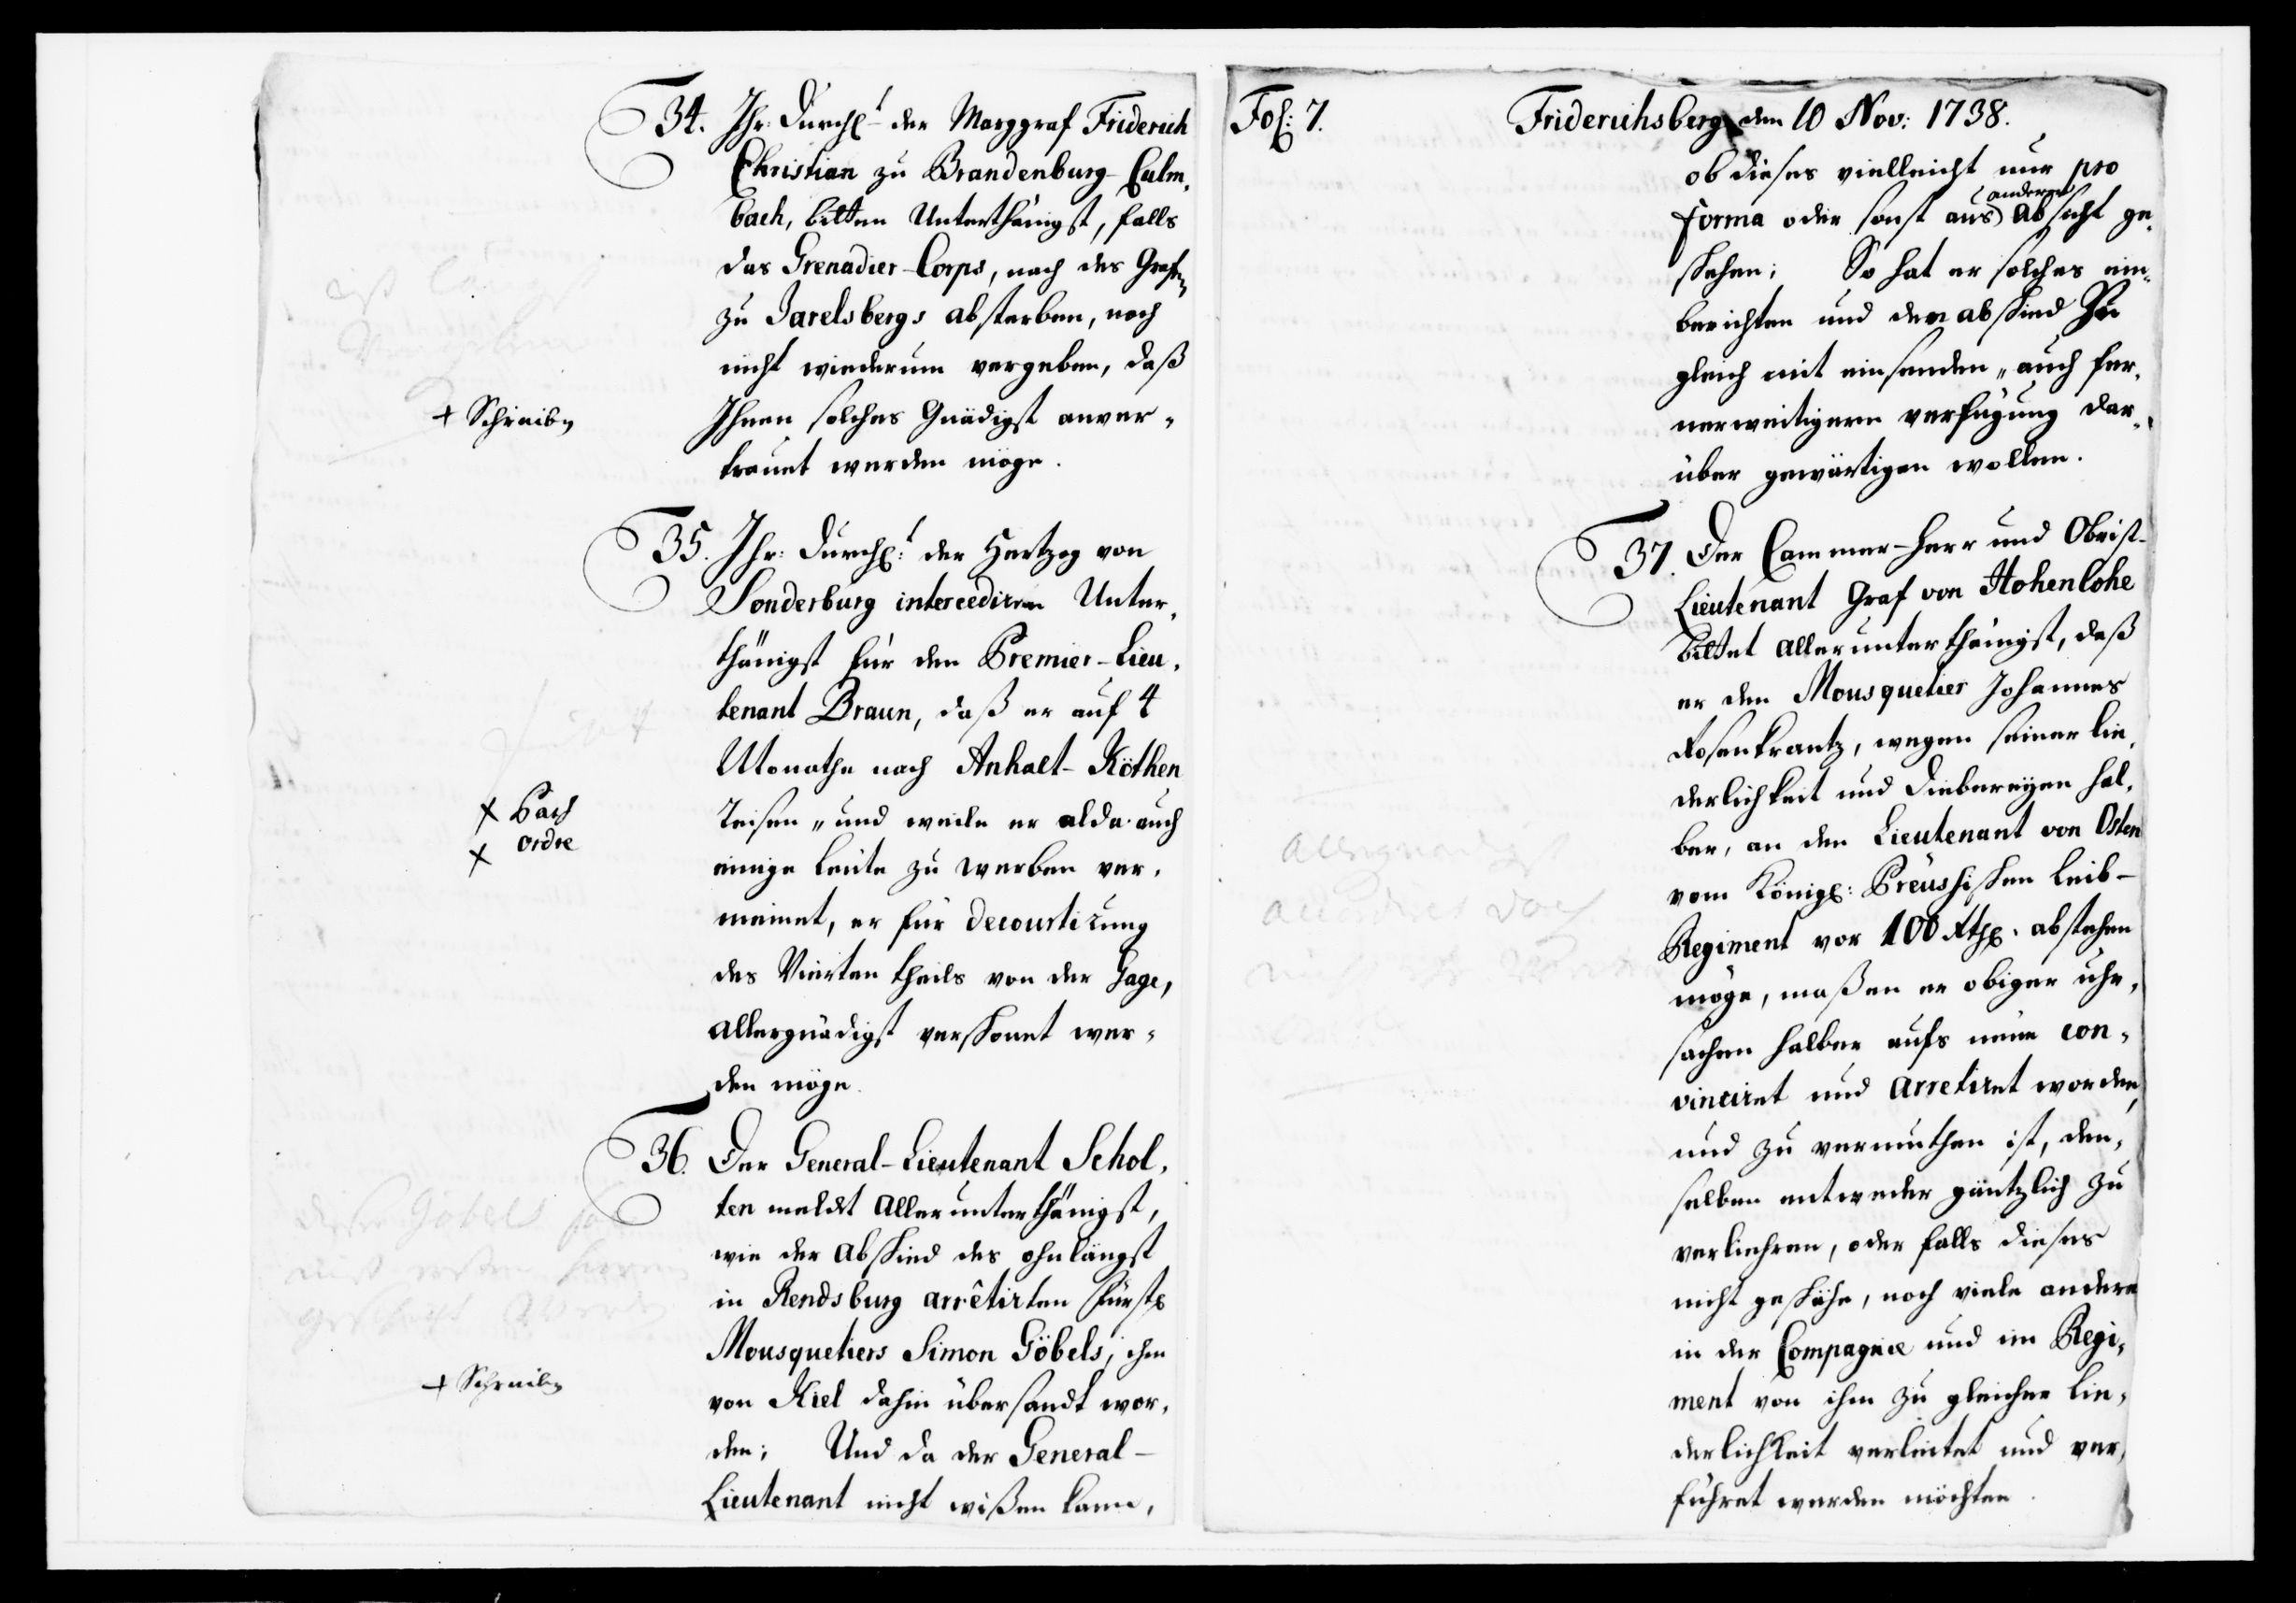 34. Ihr: Durchl: der Marggraf Friderich
Christian zu Brandenburg-Culm,
bach, bitten Unterthänigst, falls
das Grenadier-Corps, nach des Grafen
zu Jarelsbergs absterben, noch
nicht wiederum vergeben, daß
Ihnen solches Gnädigst anver,
trauet werden möge.
ist längst
vergeben
+ Schreiben
35. Ihr: Durchl: der Hertzog von
Sonderburg intercediren Unter,
thänigst für den Premier-Lieu,
tenant Braun, daß er auf 4
Monathe nach Anhalt-Köthen
reisen, und weile er alda auch
einige Leute zu werben ver,
meinet, er für decourtirung
des Vierten theils von der Gage,
allergnädigst verschonet wer,
den möge.
+ Paß
+ ordre
36. Der General-Lieutenant Schol,
ten meldet allerunterthänigst,
wie der Abschied des ohnlängst
in Rendsburg arrêtirten Fürstl
Mousquetiers Simon Göbels, ihm
von Kiel dahin übersandt wor,
den; Und da der General-
Lieutenant nicht wißen kann,
Göbels
+ Schreiben
Fol: 7.
Friderichsberg den 10 Nov: 1738.
ob dieses vielleicht nur pro
forma oder sonst aus anderer Absicht ge,
schehen; So hat er solches ein,
berichten und den abschied zu
gleich mit einsenden, auch fer,
nerweitigere verfügung dar,
über gewärtigen wollen.
37. Der Cammer-Herr und Obrist-
Lieutenant Graf von Hohenlohe
bittet allerunterthänigst, daß
er den Mousquetier Johannes
Rosenkrantz, wegen seiner lie,
derlichkeit und Diebereyen hal,
ber, an den Lieutenant von Osten
vom Königl: Preussischen Leib-
Regiment vor 100 Rthl. abstehen
möge, maßen er obiger uhr,
sachen halber aufs neue con,
vinciret und arretiret worden,
und zu vermuthen ist, den,
selben entweder gäntzlich zu
verliehren, oder falls dieses
nicht geschähe, noch viele andere
in der Compagnie und im Regi,
ment von ihm zu gleicher lie,
derlichkeit verleitet und ver,
führet werden möchten.